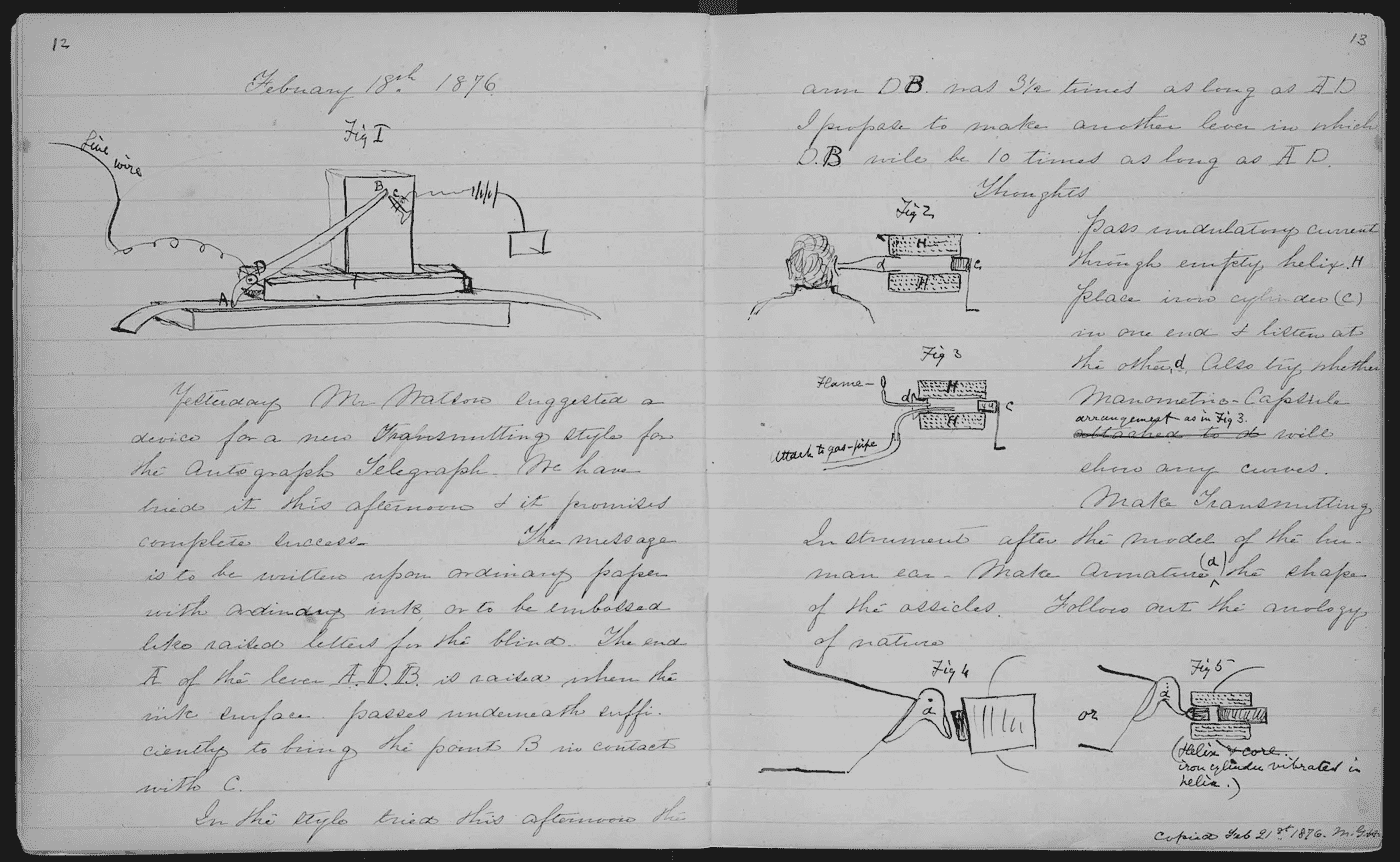 12
February 18th. 1876.
Fig I
Line wire
B
C
D
A
Yesterday Mr Watson suggested a
device for a new Transmitting style for
the Autograph Telegraph. We have
tried it this afternoon & it promises
complete success. The message
is to be written upon ordinary paper
with ordinary ink, or to be embossed
like raised letters for the blind. The end
A of the lever A.D.B. is raised when the
ink surface passes underneath suffi-
ciently to bring the point B in contact
with C.
In the style tried this afternoon the
13
arm DB. was 3½ times as long as A D
I propose to make another lever in which
D.B will be 10 times as long as A D.
Thoughts
Fig 2
H
d
C
H
Pass undulatory current
through empty helix. H
place iron cylinder (C)
in one end & listen at
the other, d. Also try whether
Manometric-Capsule
arrangement as in Fig 3.
attached to d will
show any curves.
Fig 3
Flame-
H
d
C
H
Attach to gas-pipe
Make Transmitting
Instrument after the model of the hu-
man ear. Make armature (a) the shape
of the ossicles. Follow out the anology
of nature
Fig 4
a
or
Fig 5
a
(Helix & core.
iron cylinder vibrated in
helix.)
Copied Feb 21st 1876.